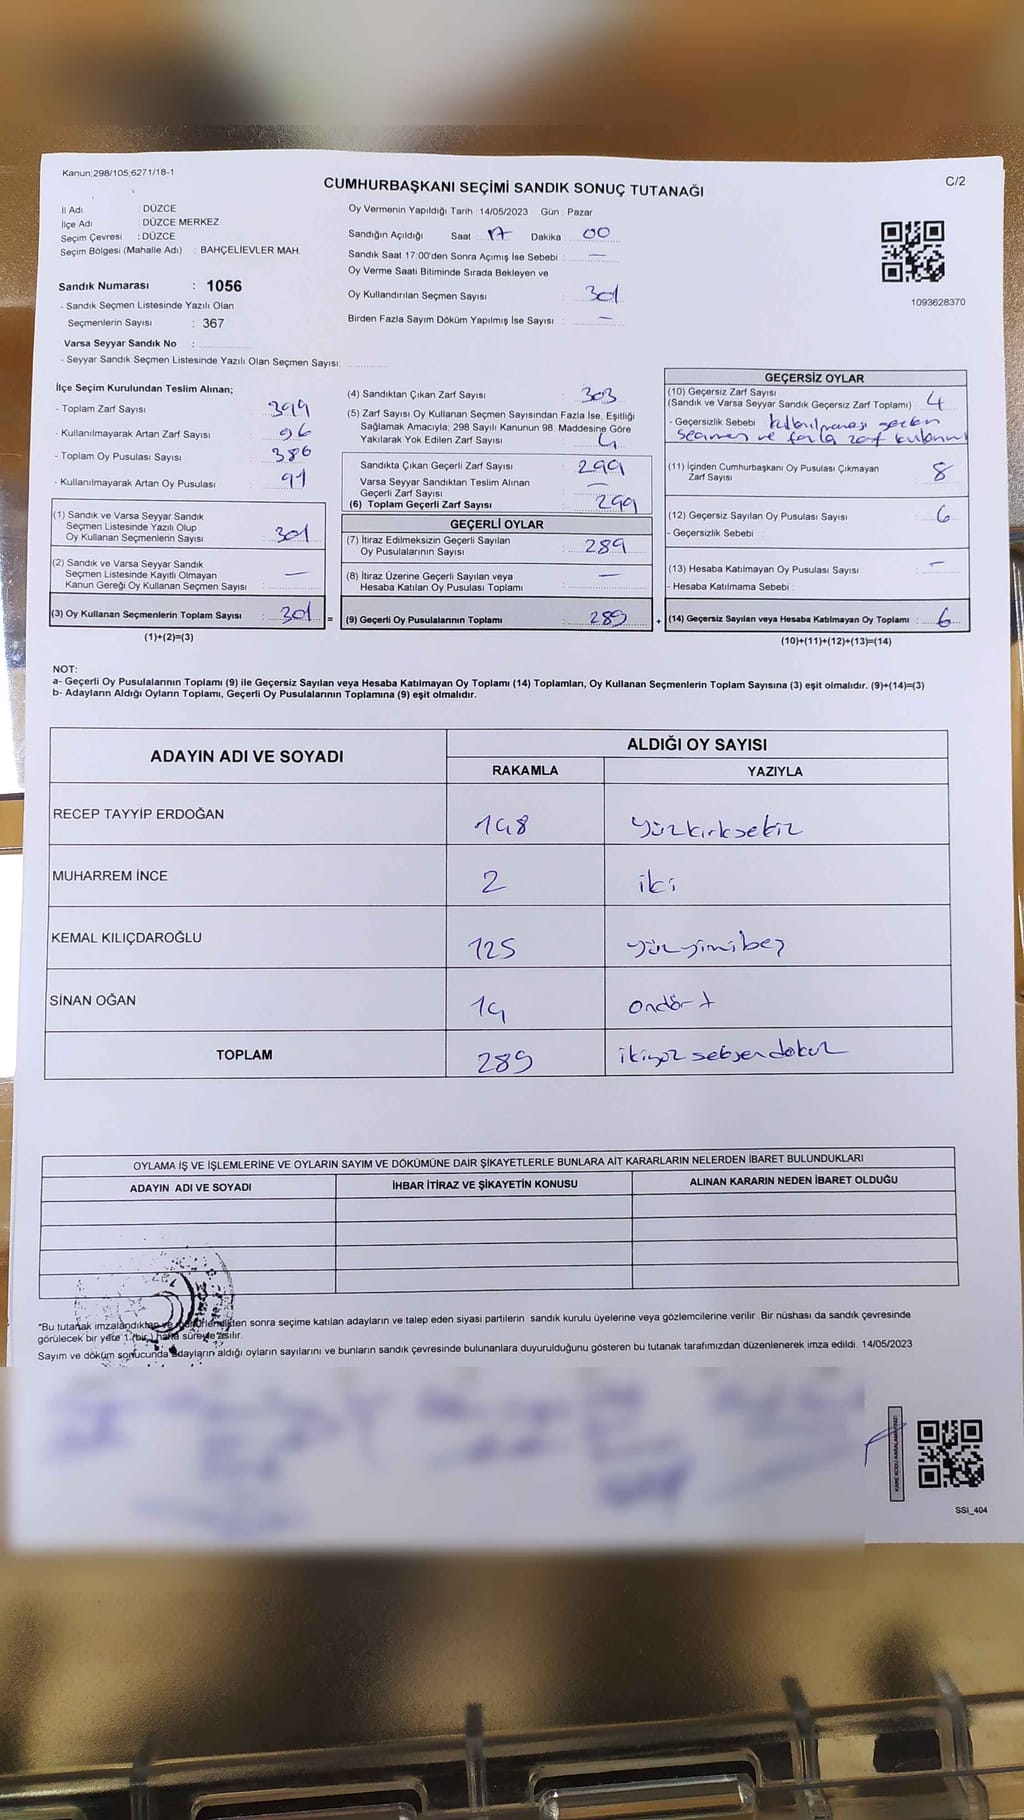 Kanun;298/105;6271/18-1
C/2
CUMHURBAŞKANI SEÇİMİ SANDIK SONUÇ TUTANAĞI
İl Adı : DÜZCE
İlçe Adı : DÜZCE MERKEZ
Seçim Çevresi : DÜZCE
Seçim Bölgesi (Mahalle Adı) : BAHÇELİEVLER MAH.
Sandık Numarası : 1056
- Sandık Seçmen Listesinde Yazılı Olan
Seçmenlerin Sayısı : 367
Varsa Seyyar Sandık No :
- Seyyar Sandık Seçmen Listesinde Yazılı Olan Seçmen Sayısı:
Oy Vermenin Yapıldığı Tarih : 14/05/2023 Gün : Pazar
Sandığın Açıldığı Saat : 17 Dakika : 00
Sandık Saat 17:00'den Sonra Açımış İse Sebebi : —
Oy Verme Saati Bitiminde Sırada Bekleyen ve
Oy Kullandırılan Seçmen Sayısı : 301
Birden Fazla Sayım Döküm Yapılmış İse Sayısı : —
1093628370
İlçe Seçim Kurulundan Teslim Alınan;
- Toplam Zarf Sayısı : 399
- Kullanılmayarak Artan Zarf Sayısı : 96
- Toplam Oy Pusulası Sayısı : 386
- Kullanılmayarak Artan Oy Pusulası : 91
(1) Sandık ve Varsa Seyyar Sandık
Seçmen Listesinde Yazılı Olup
Oy Kullanan Seçmenlerin Sayısı : 301
(2) Sandık ve Varsa Seyyar Sandık
Seçmen Listesinde Kayıtlı Olmayan
Kanun Gereği Oy Kullanan Seçmen Sayısı : —
(3) Oy Kullanan Seçmenlerin Toplam Sayısı : 301 =
(1)+(2)=(3)
(4) Sandıktan Çıkan Zarf Sayısı : 303
(5) Zarf Sayısı Oy Kullanan Seçmen Sayısından Fazla İse, Eşitliği
Sağlamak Amacıyla; 298 Sayılı Kanunun 98. Maddesine Göre
Yakılarak Yok Edilen Zarf Sayısı : 4
Sandıkta Çıkan Geçerli Zarf Sayısı : 299
Varsa Seyyar Sandıktan Teslim Alınan
Geçerli Zarf Sayısı : —
(6) Toplam Geçerli Zarf Sayısı : 299
GEÇERLİ OYLAR
(7) İtiraz Edilmeksizin Geçerli Sayılan
Oy Pusulalarının Sayısı : 289
(8) İtiraz Üzerine Geçerli Sayılan veya
Hesaba Katılan Oy Pusulası Toplamı : —
(9) Geçerli Oy Pusulalarının Toplamı : 289 +
GEÇERSİZ OYLAR
(10) Geçersiz Zarf Sayısı
(Sandık ve Varsa Seyyar Sandık Geçersiz Zarf Toplamı) : 4
- Geçersizlik Sebebi :
seçmen ve fazla zarf kullanımı
(11) İçinden Cumhurbaşkanı Oy Pusulası Çıkmayan
Zarf Sayısı : 8
(12) Geçersiz Sayılan Oy Pusulası Sayısı : 6
- Geçersizlik Sebebi :
(13) Hesaba Katılmayan Oy Pusulası Sayısı : —
- Hesaba Katılmama Sebebi :
(14) Geçersiz Sayılan veya Hesaba Katılmayan Oy Toplamı : 6
(10)+(11)+(12)+(13)=(14)
NOT:
a- Geçerli Oy Pusulalarının Toplamı (9) ile Geçersiz Sayılan veya Hesaba Katılmayan Oy Toplamı (14) Toplamları, Oy Kullanan Seçmenlerin Toplam Sayısına (3) eşit olmalıdır. (9)+(14)=(3)
b- Adayların Aldığı Oyların Toplamı, Geçerli Oy Pusulalarının Toplamına (9) eşit olmalıdır.
ADAYIN ADI VE SOYADI
ALDIĞI OY SAYISI
RAKAMLA YAZIYLA
RECEP TAYYİP ERDOĞAN 148 yüzkırksekiz
MUHARREM İNCE 2 iki
KEMAL KILIÇDAROĞLU 125 yüzyirmibeş
SİNAN OĞAN 14 ondört
TOPLAM 289 ikiyüzseksendokuz
OYLAMA İŞ VE İŞLEMLERİNE VE OYLARIN SAYIM VE DÖKÜMÜNE DAİR ŞİKAYETLERLE BUNLARA AİT KARARLARIN NELERDEN İBARET BULUNDUKLARI
ADAYIN ADI VE SOYADI İHBAR İTİRAZ VE ŞİKAYETİN KONUSU ALINAN KARARIN NEDEN İBARET OLDUĞU
*Bu tutanak imzalandıktan ve mühürlendikten sonra seçime katılan adayların ve talep eden siyasi partilerin sandık kurulu üyelerine veya gözlemcilerine verilir. Bir nüshası da sandık çevresinde
görülecek bir yere 1 (bir) hafta süreyle asılır.
Sayım ve döküm sonucunda adayların aldığı oyların sayılarını ve bunların sandık çevresinde bulunanlara duyurulduğunu gösteren bu tutanak tarafımızdan düzenlenerek imza edildi. 14/05/2023
SSI_404